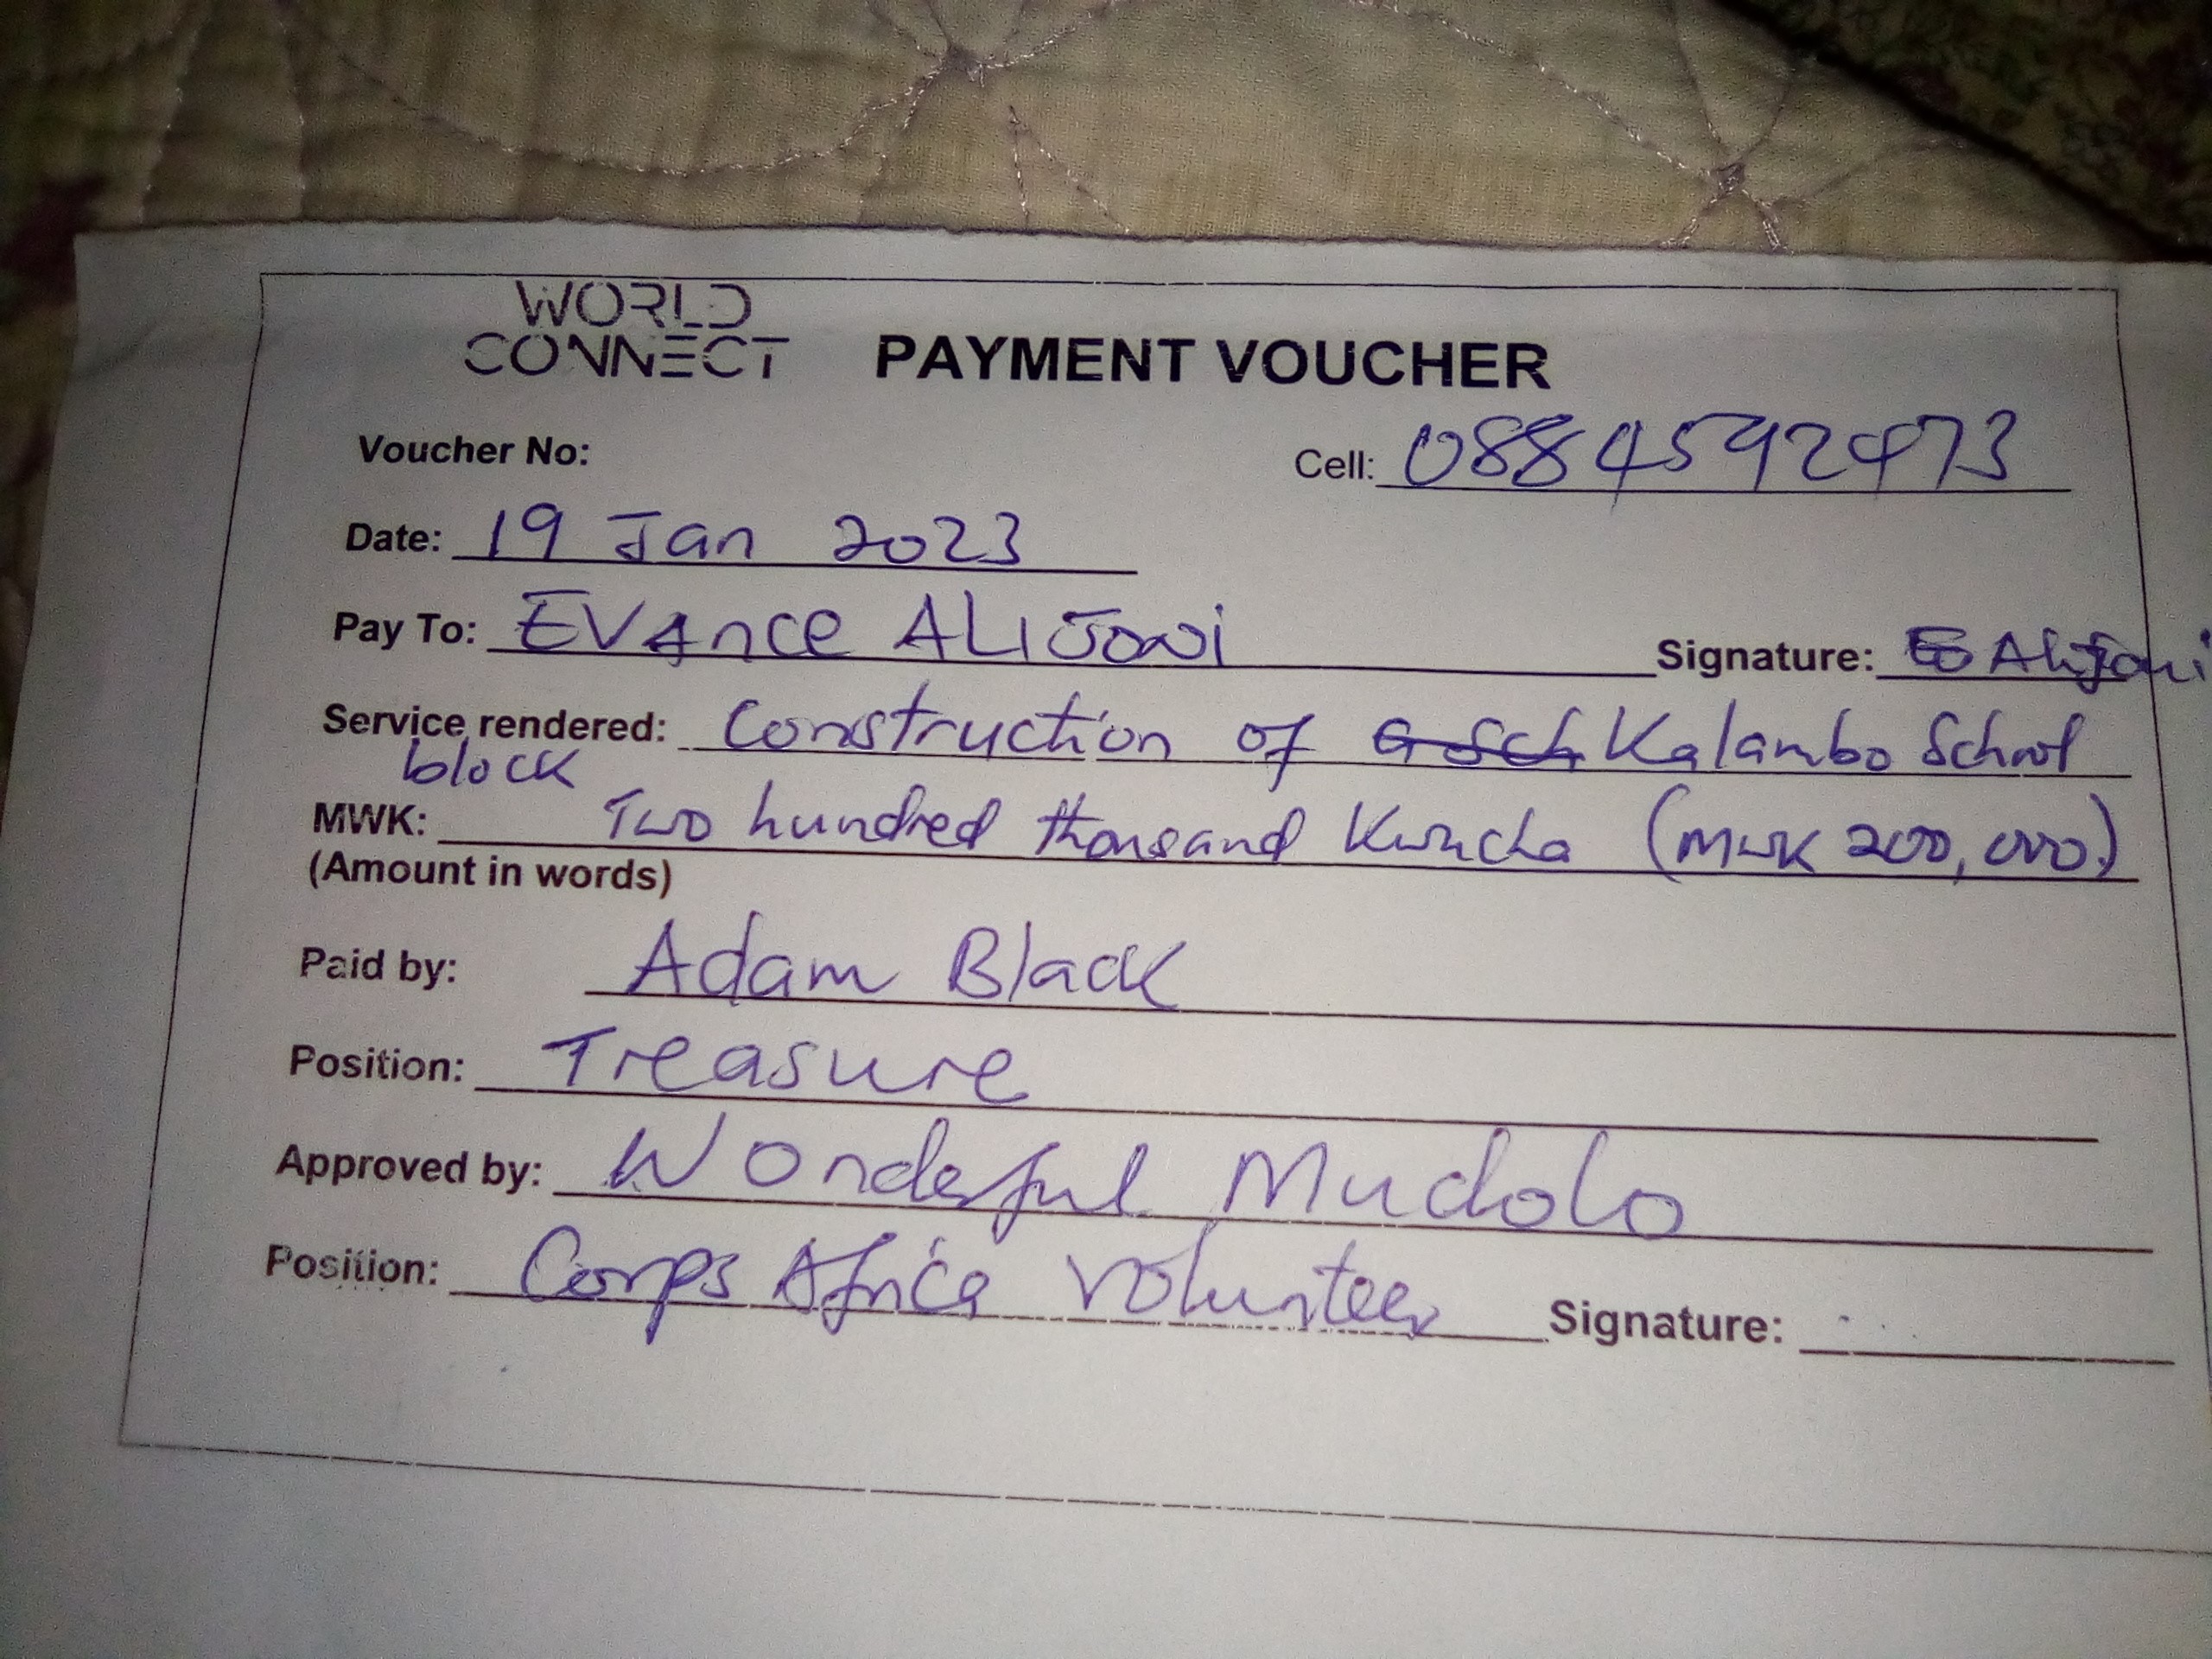 WORLD
CONNECT PAYMENT VOUCHER
Voucher No: Cell: 0884592473
Date: 19 Jan 2023
Pay To: EVAnce ALIJoni Signature: E Alijoni
Service rendered: Construction of Kalambo School
block
MWK: Two hundred thousand Kwacha (MWK 200,000)
(Amount in words)
Paid by: Adam Black
Position: Treasure
Approved by: Wonderful Mudolo
Position: Corps Africa Volunteer Signature: